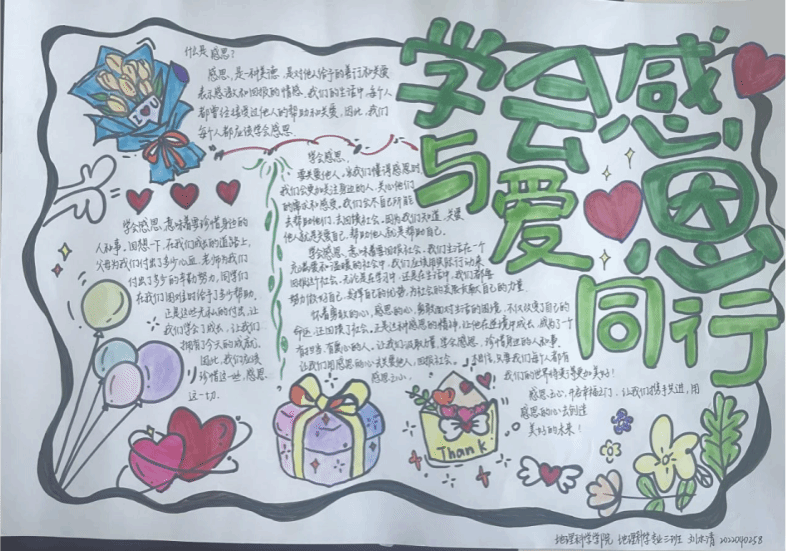 学会感恩
与爱同行
什么是感恩？
感恩，是一种美德，是对他人给予的善行和关爱
表示感激和回报的情感。我们的生活中，每个人
都曾经接受过他人的帮助和关爱，因此，我们
每个人都应该学会感恩。
学会感恩，意味着要珍惜身边的
人和事。回想一下，在我们成长的道路上，
父母为我们付出了多少心血，老师为我们
付出了多少的辛勤努力，同学们
在我们困难时给予了多少帮助。
正是这些无私的付出，让
我们学会了成长，让我们
拥有了今天的成就。
因此，我们应该
珍惜这一些，感恩
这一切。
学会感恩，
要关爱他人，当我们懂得感恩时，
我们会更加关注身边的人，关心他们
的需求和感受。我们会尽自己所能
去帮助他们，去回报社会。因为我们知道，关爱
他人就是关爱自己，帮助他人就是帮助自己。
学会感恩，意味着要回报社会，我们生活在一个
充满爱和温暖的社会中，我们应该用实际行动来
回报这个社会。无论是在学习中，还是在生活中，我们都要
努力做好自己，发挥自己的优势，为社会的发展贡献自己的力量。
怀着勇敢的心，感恩的心，勇敢面对生活的困境，不仅改变了自己的
命运，还回报了社会。正是这种感恩的精神，让他在逆境中成长，成为了一个
有担当、有爱心的人。让我们汲取力量，学会感恩，珍惜身边的人和事，
让我们用感恩的心去关爱他人，回报社会。相信，只要我们每个人都有
感恩之心，我们的世界将变得更加美好！
感恩之心，开启幸福之门，让我们携手共进，用
感恩的心去创造
美好的未来！
I U
Thank
地理科学学院 地理科学专业三班 刘冰清 2022040258